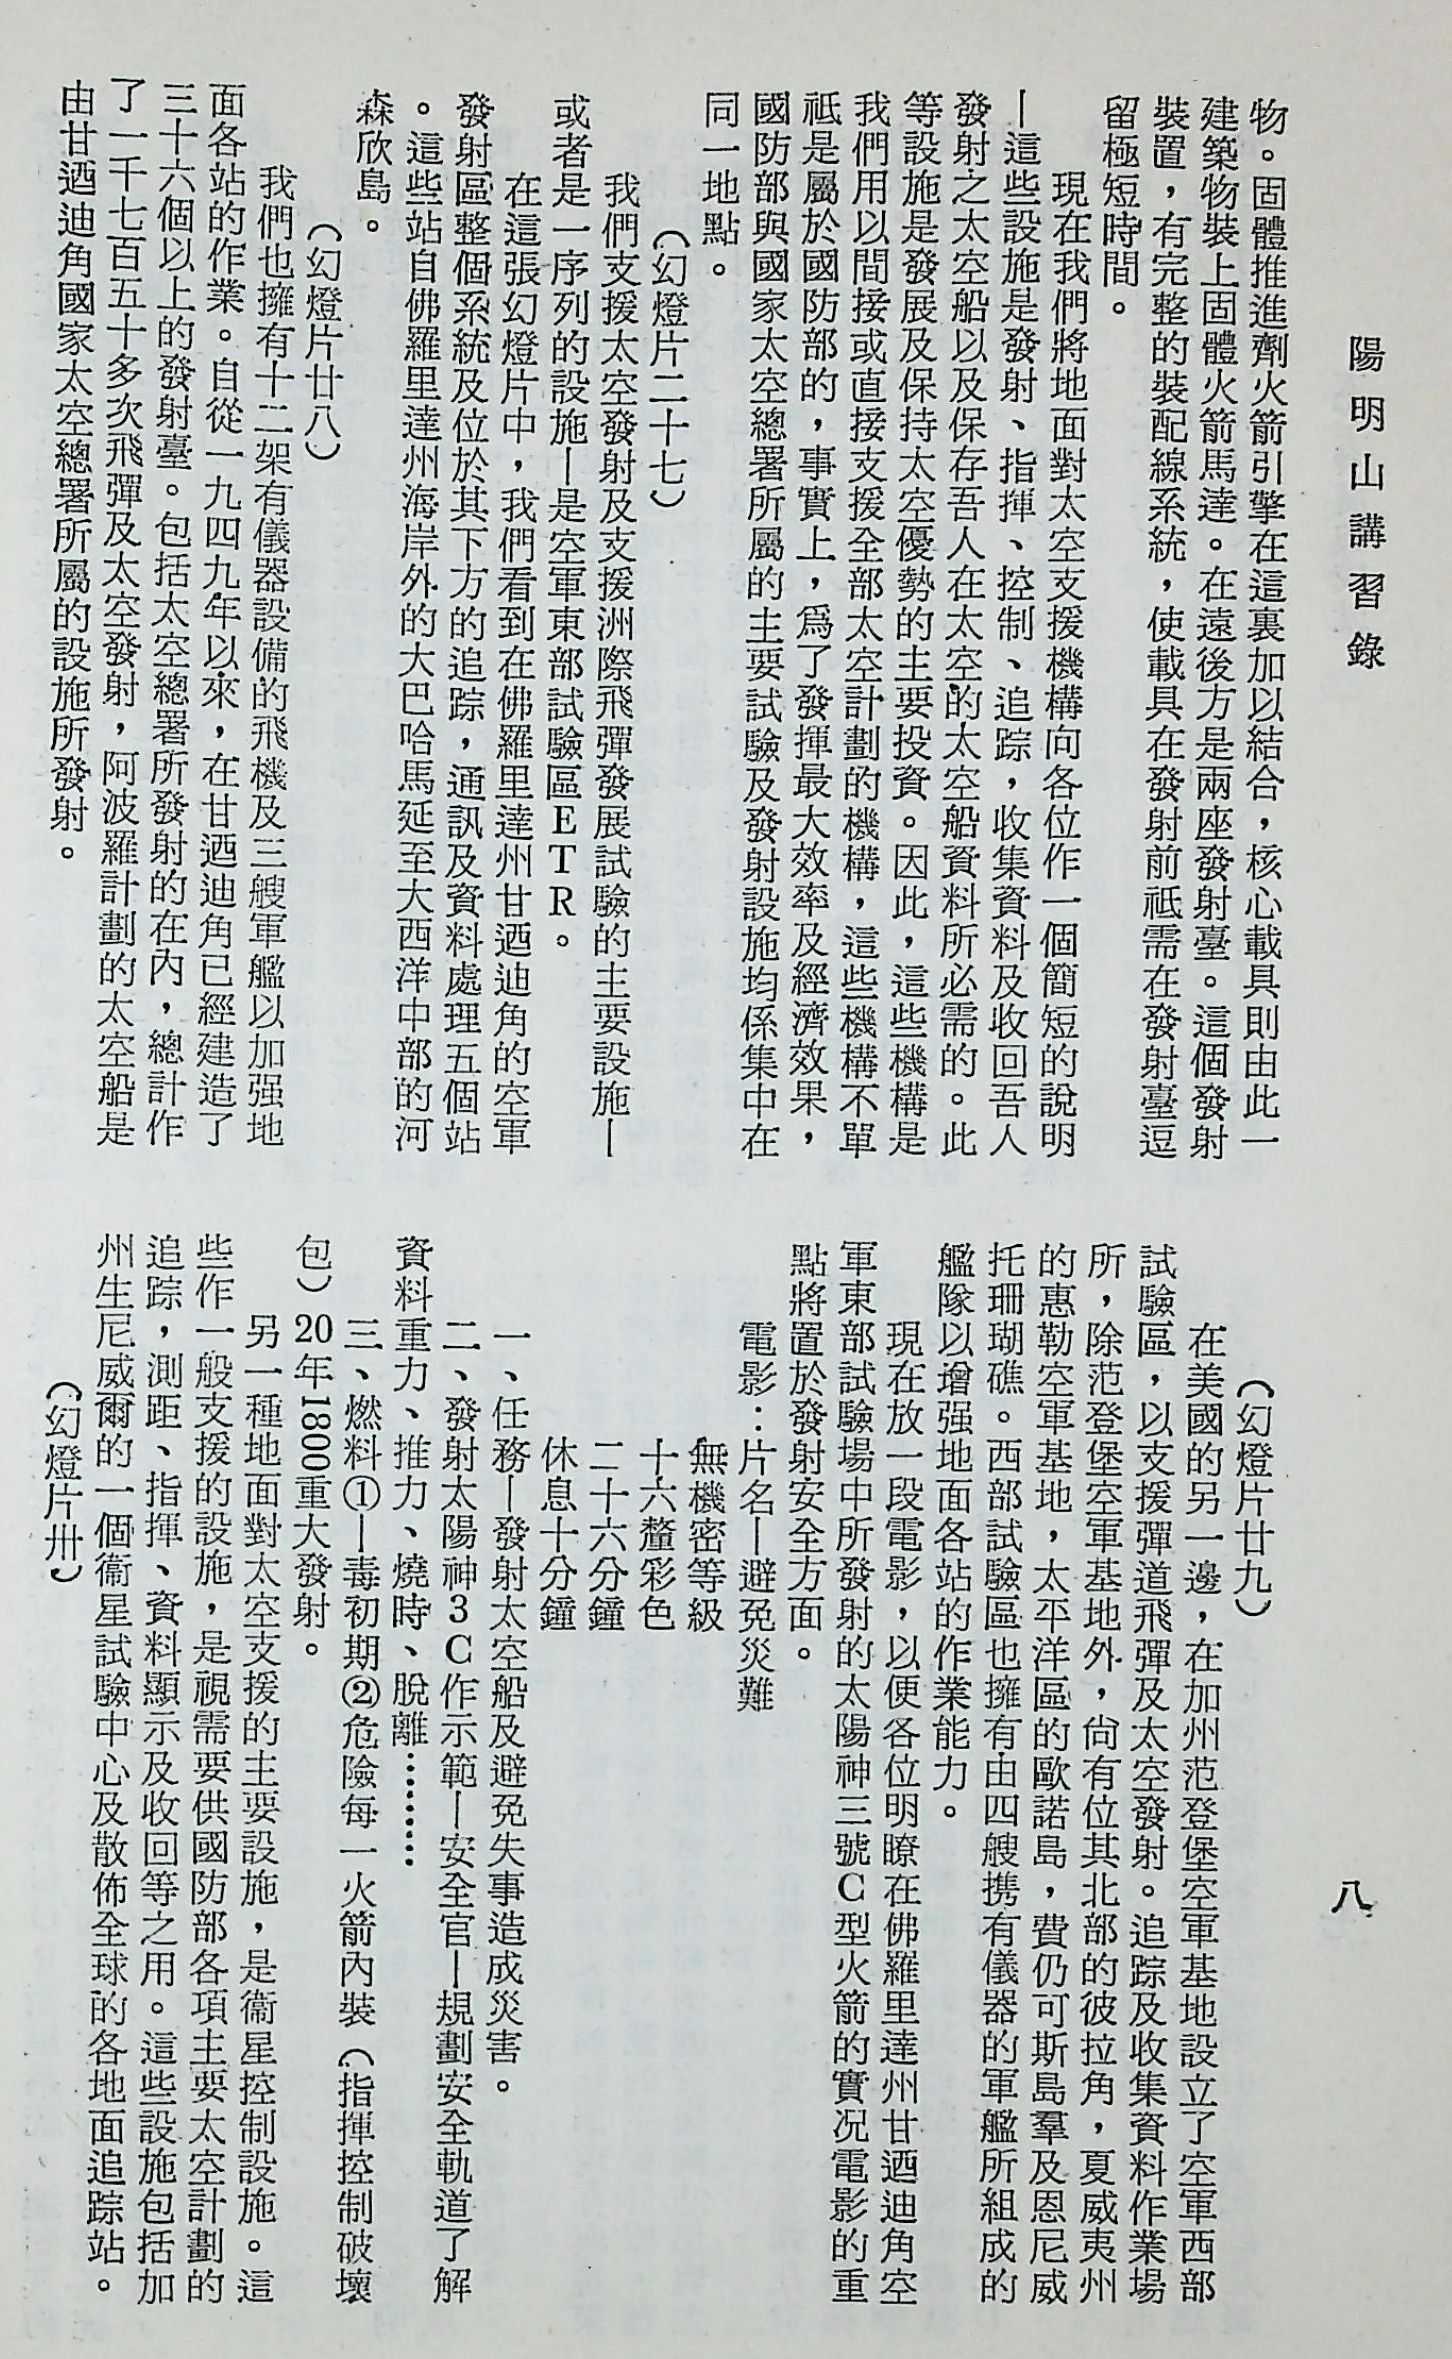 陽明山講習錄
八
物。固體推進劑火箭引擎在這裏加以結合，核心載具則由此一
建築物裝上固體火箭馬達。在遠後方是兩座發射臺。這個發射
裝置，有完整的裝配線系統，使載具在發射前祗需在發射臺逗
留極短時間。
現在我們將地面對太空支援機構向各位作一個簡短的說明
—這些設施是發射、指揮、控制、追踪，收集資料及收回吾人
發射之太空船以及保存吾人在太空的太空船資料所必需的。此
等設施是發展及保持太空優勢的主要投資。因此，這些機構是
我們用以間接或直接支援全部太空計劃的機構，這些機構不單
祗是屬於國防部的，事實上，爲了發揮最大效率及經濟效果，
國防部與國家太空總署所屬的主要試驗及發射設施均係集中在
同一地點。
（幻燈片二十七）
我們支援太空發射及支援洲際飛彈發展試驗的主要設施—
或者是一序列的設施—是空軍東部試驗區ETR。
在這張幻燈片中，我們看到在佛羅里達州甘迺迪角的空軍
發射區整個系統及位於其下方的追踪，通訊及資料處理五個站
。這些站自佛羅里達州海岸外的大巴哈馬延至大西洋中部的河
森欣島。
（幻燈片廿八）
我們也擁有十二架有儀器設備的飛機及三艘軍艦以加强地
面各站的作業。自從一九四九年以來，在甘迺迪角已經建造了
三十六個以上的發射臺。包括太空總署所發射的在內，總計作
了一千七百五十多次飛彈及太空發射，阿波羅計劃的太空船是
由甘迺迪角國家太空總署所屬的設施所發射。
（幻燈片廿九）
在美國的另一邊，在加州范登堡空軍基地設立了空軍西部
試驗區，以支援彈道飛彈及太空發射。追踪及收集資料作業場
所，除范登堡空軍基地外，尙有位其北部的彼拉角，夏威夷州
的惠勒空軍基地，太平洋區的歐諾島，費仍可斯島羣及恩尼威
托珊瑚礁。西部試驗區也擁有由四艘携有儀器的軍艦所組成的
艦隊以增强地面各站的作業能力。
現在放一段電影，以便各位明瞭在佛羅里達州甘迺迪角空
軍東部試驗場中所發射的太陽神三號C型火箭的實況電影的重
點將置於發射安全方面。
電影：片名—避免災難
無機密等級
十六釐彩色
二十六分鐘
休息十分鐘
一、任務—發射太空船及避免失事造成災害。
二、發射太陽神3C作示範—安全官—規劃安全軌道了解
資料重力、推力、燒時、脫離………
三、燃料①—毒初期②危險每一火箭內裝（指揮控制破壞
包）20年1800重大發射。
另一種地面對太空支援的主要設施，是衞星控制設施。這
些作一般支援的設施，是視需要供國防部各項主要太空計劃的
追踪，測距、指揮、資料顯示及收回等之用。這些設施包括加
州生尼威爾的一個衞星試驗中心及散佈全球的各地面追踪站。
（幻燈片卅）